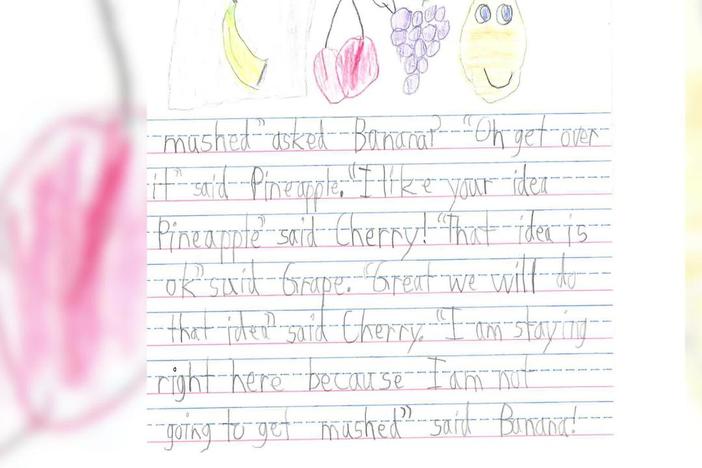 mushed" asked Banana? "Oh get over
it" said Pineapple. "I like your idea
Pineapple" said Cherry! "That idea is
ok" said Grape. "Great we will do
that idea" said Cherry. "I am staying
right here because I am not
going to get mushed" said Banana!